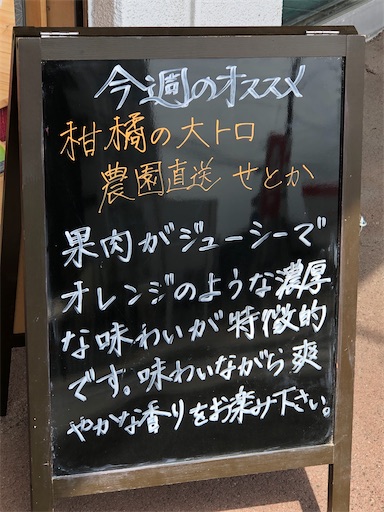 今週のオススメ
柑橘の大トロ
農園直送 せとか
果肉がジューシーで
オレンジのような濃厚
な味わいが特徴的
です。味わいながら爽
やかな香りをお楽み下さい。